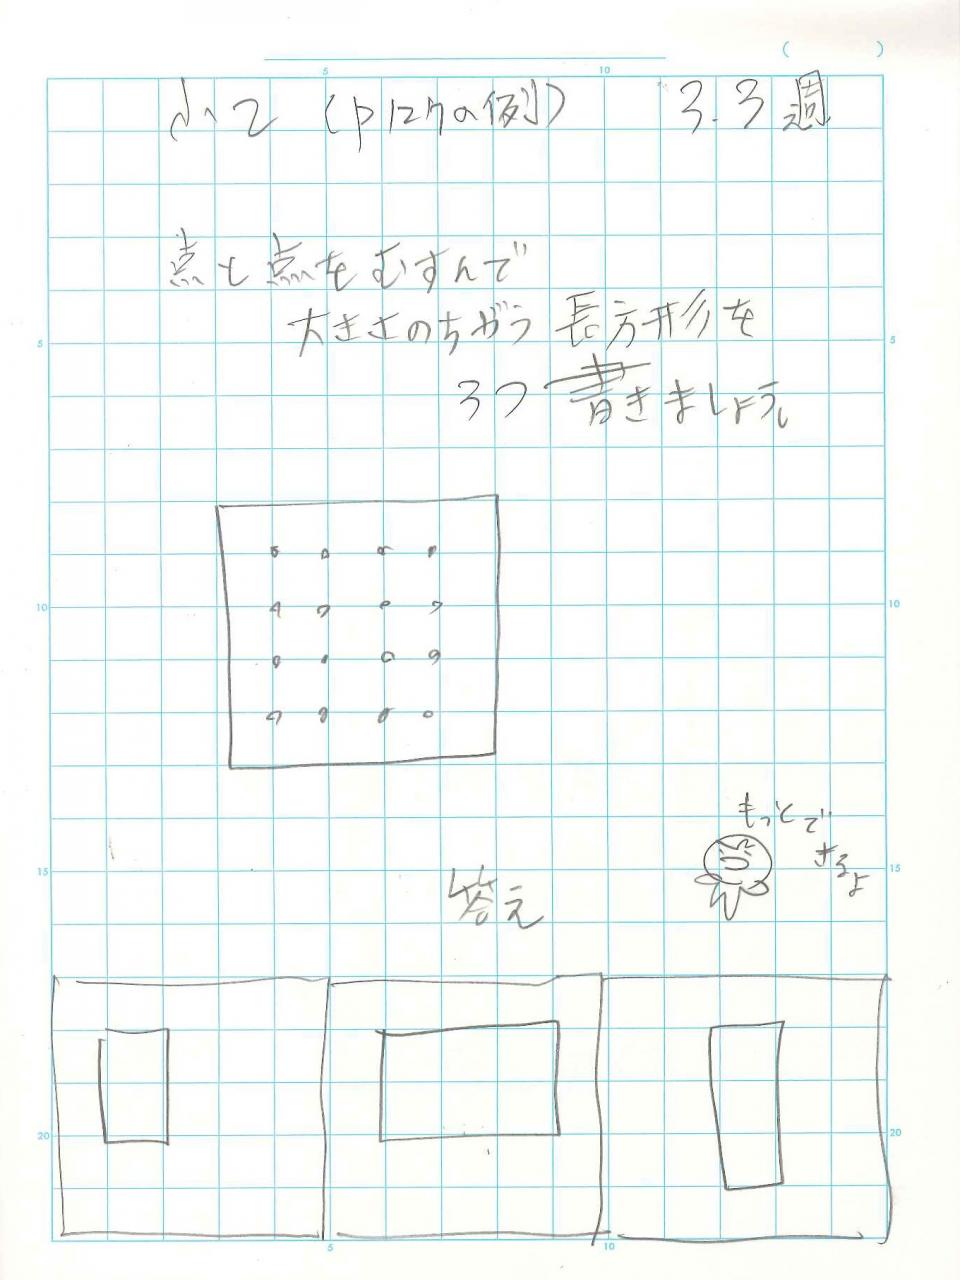 小2 (P127の例) 3.3週
点と点をむすんで
大きさのちがう長方形を
3つ書きましょう
もっとで
きるよ
答え
5 10
5 5
10 10
15 15
20 20
5 10